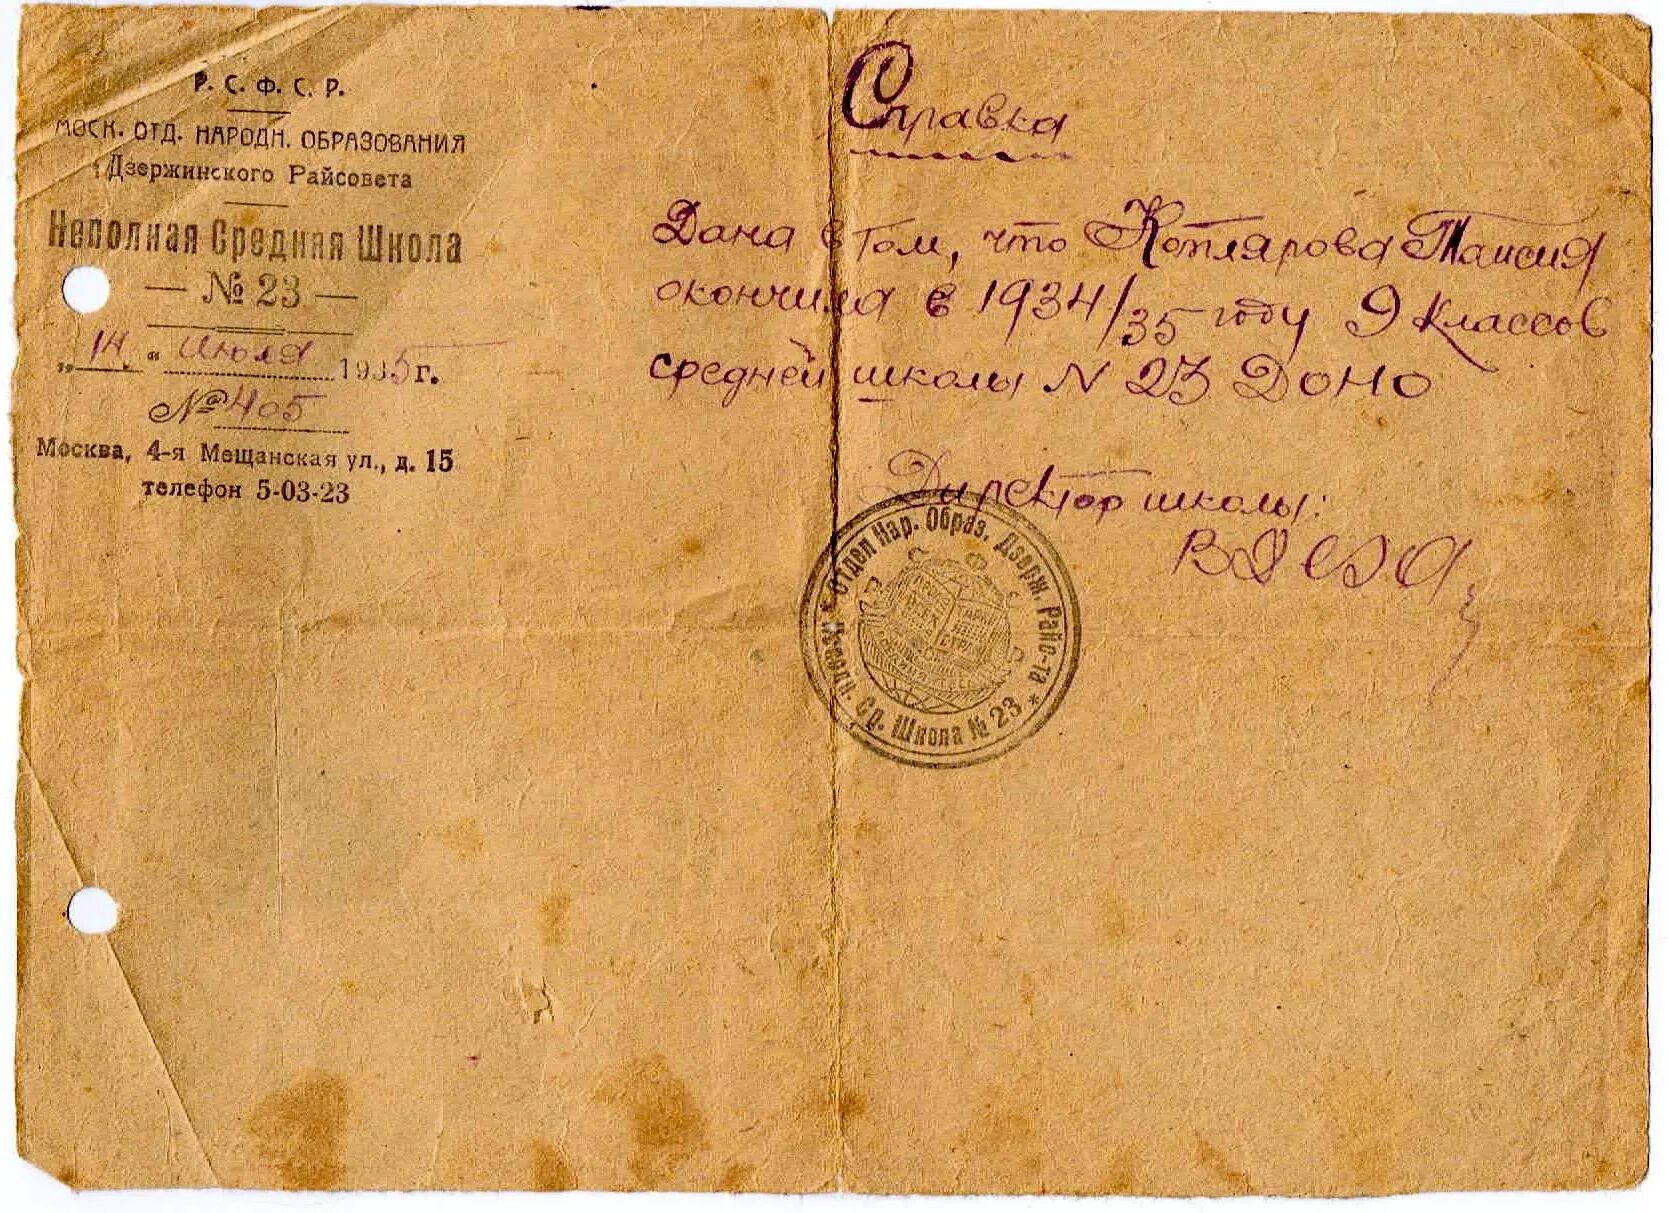 Р. С. Ф. С. Р.
МОСК. ОТД. НАРОДН. ОБРАЗОВАНИЯ
Дзержинского Райсовета
Неполная Средняя Школа
— № 23 —
„14“ июля 1935 г.
№ 405
Москва, 4-я Мещанская ул., д. 15
телефон 5-03-23
Справка
Дана в том, что Котлярова Таисия
окончила в 1934/35 году 9 классов
средней школы N 23 ДОНО
Директор школы:
Отдел Нар. Образ. Дзерж. Райс-та * Ср. Школа № 23 *